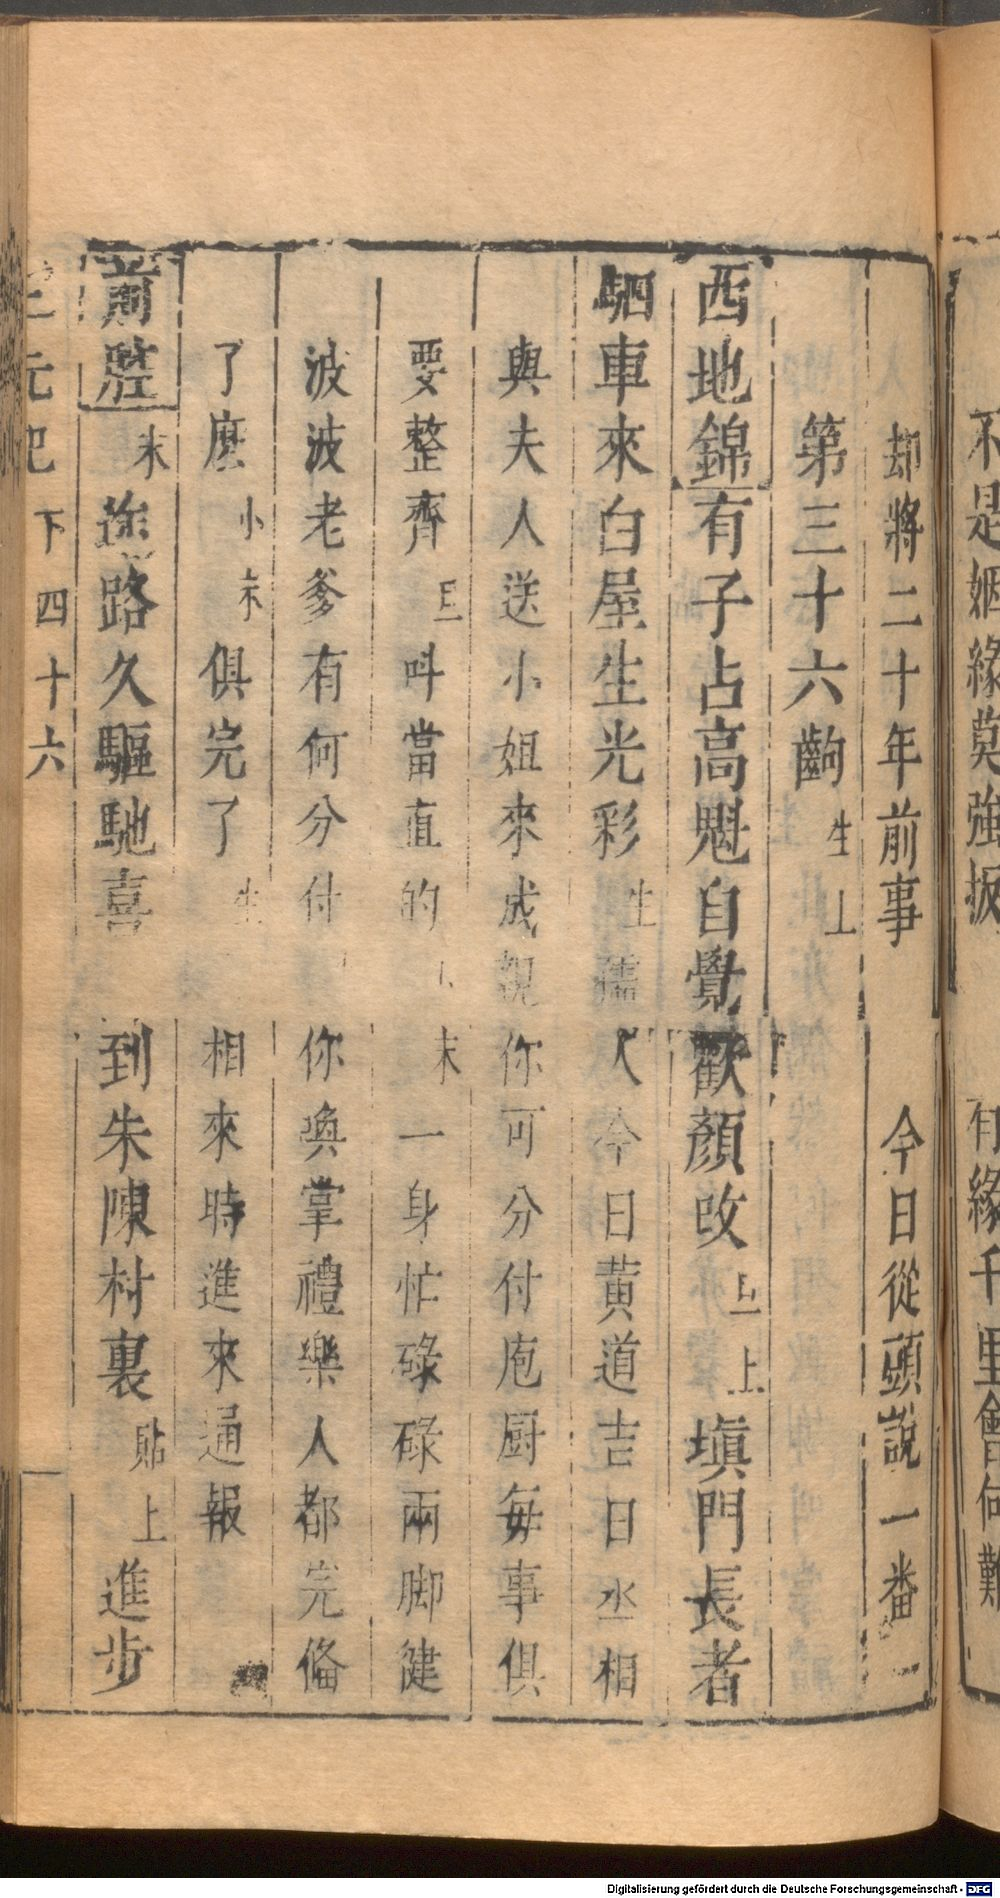 不是姻緣莫強扳 有緣千里會何難
却將二十年前事 今日從頭說一番
第三十六齣 生上
西地錦 有子占高魁自覺歡顏改 旦上 塡門長者
駟車來白屋生光彩 生 孺人今日黄道吉日丞相
與夫人送小姐來成親你可分付庖厨每事俱
要整齊 旦 叫當直的 末 一身忙碌碌兩脚健
波波老爹有何分付 你喚掌禮樂人都完俻
了麽 小末 俱完了 生 相來時進來通報
前腔 末 途路久驅馳喜到朱陳村裏 貼上 進步
三元 下 四十六
Digitalisierung gefördert durch die Deutsche Forschungsgemeinschaft - DFG